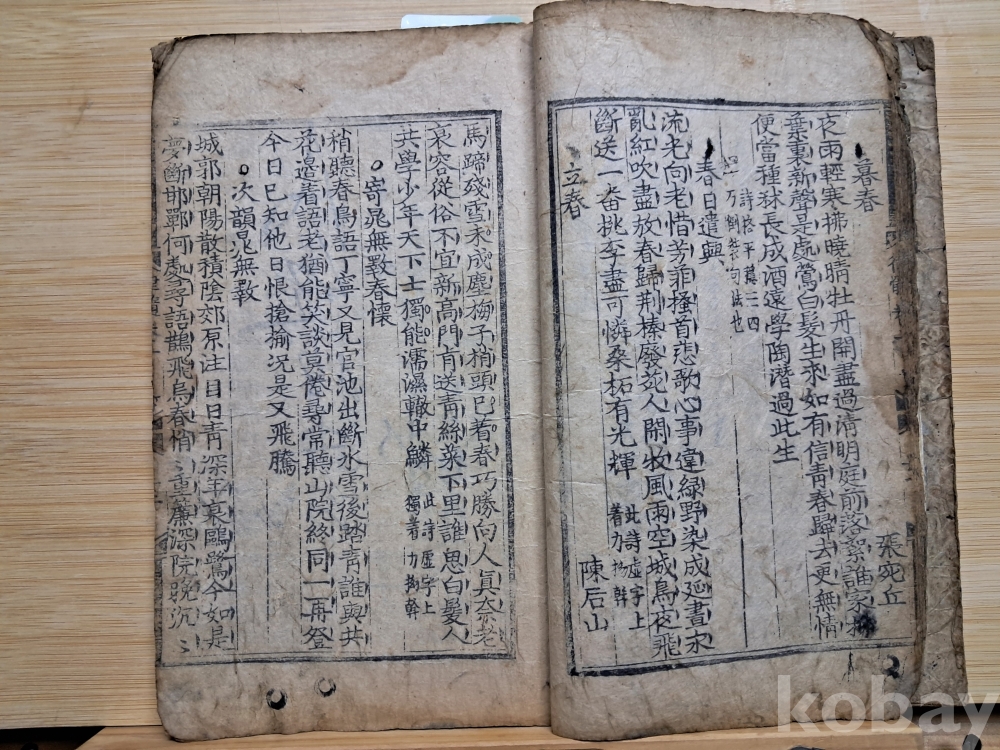 暮春　張宛丘
夜雨輕寒拂曉晴牡丹開盡過淸明庭前落絮誰家柳
葉裏新聲是處鶯白髮生來如有信靑春歸去更無情
便當種秫長成酒遠學陶潛過此生
詩格平莫三四
乃倒裝句法也
春日遣興
流光向老惜芳菲搔首悲歌心事違綠野染成延晝永
亂紅吹盡放春歸荆榛廢苑人閑牧風雨空城鳥夜飛
斷送一番桃李盡可憐桑柘有光輝　此詩虛字上
着力 斡
立春　陳后山
馬蹄殘雪未成塵梅子梢頭已着春巧勝向人眞奈老
衰容從俗不宜新高門肯送靑絲菜下里誰思白髮人
共學少年天下士獨能濡濕轍中鱗　此詩虛字上
獨著力 斡
寄晁無斁春懷
稍聽春鳥語丁寧又見官池出斷氷雪後踏靑誰與共
花邊着語老猶能笑談莫倦尋常聽山院終同一再登
今日已知他日恨搶揄況是又飛騰
次韻晁無斁
城郭朝陽散積陰郊原注目日靑深年衰鷗鷺今如是
夢斷邯鄲何處尋語鵲飛烏春悄〻重簾深院晚沉〻
kobay